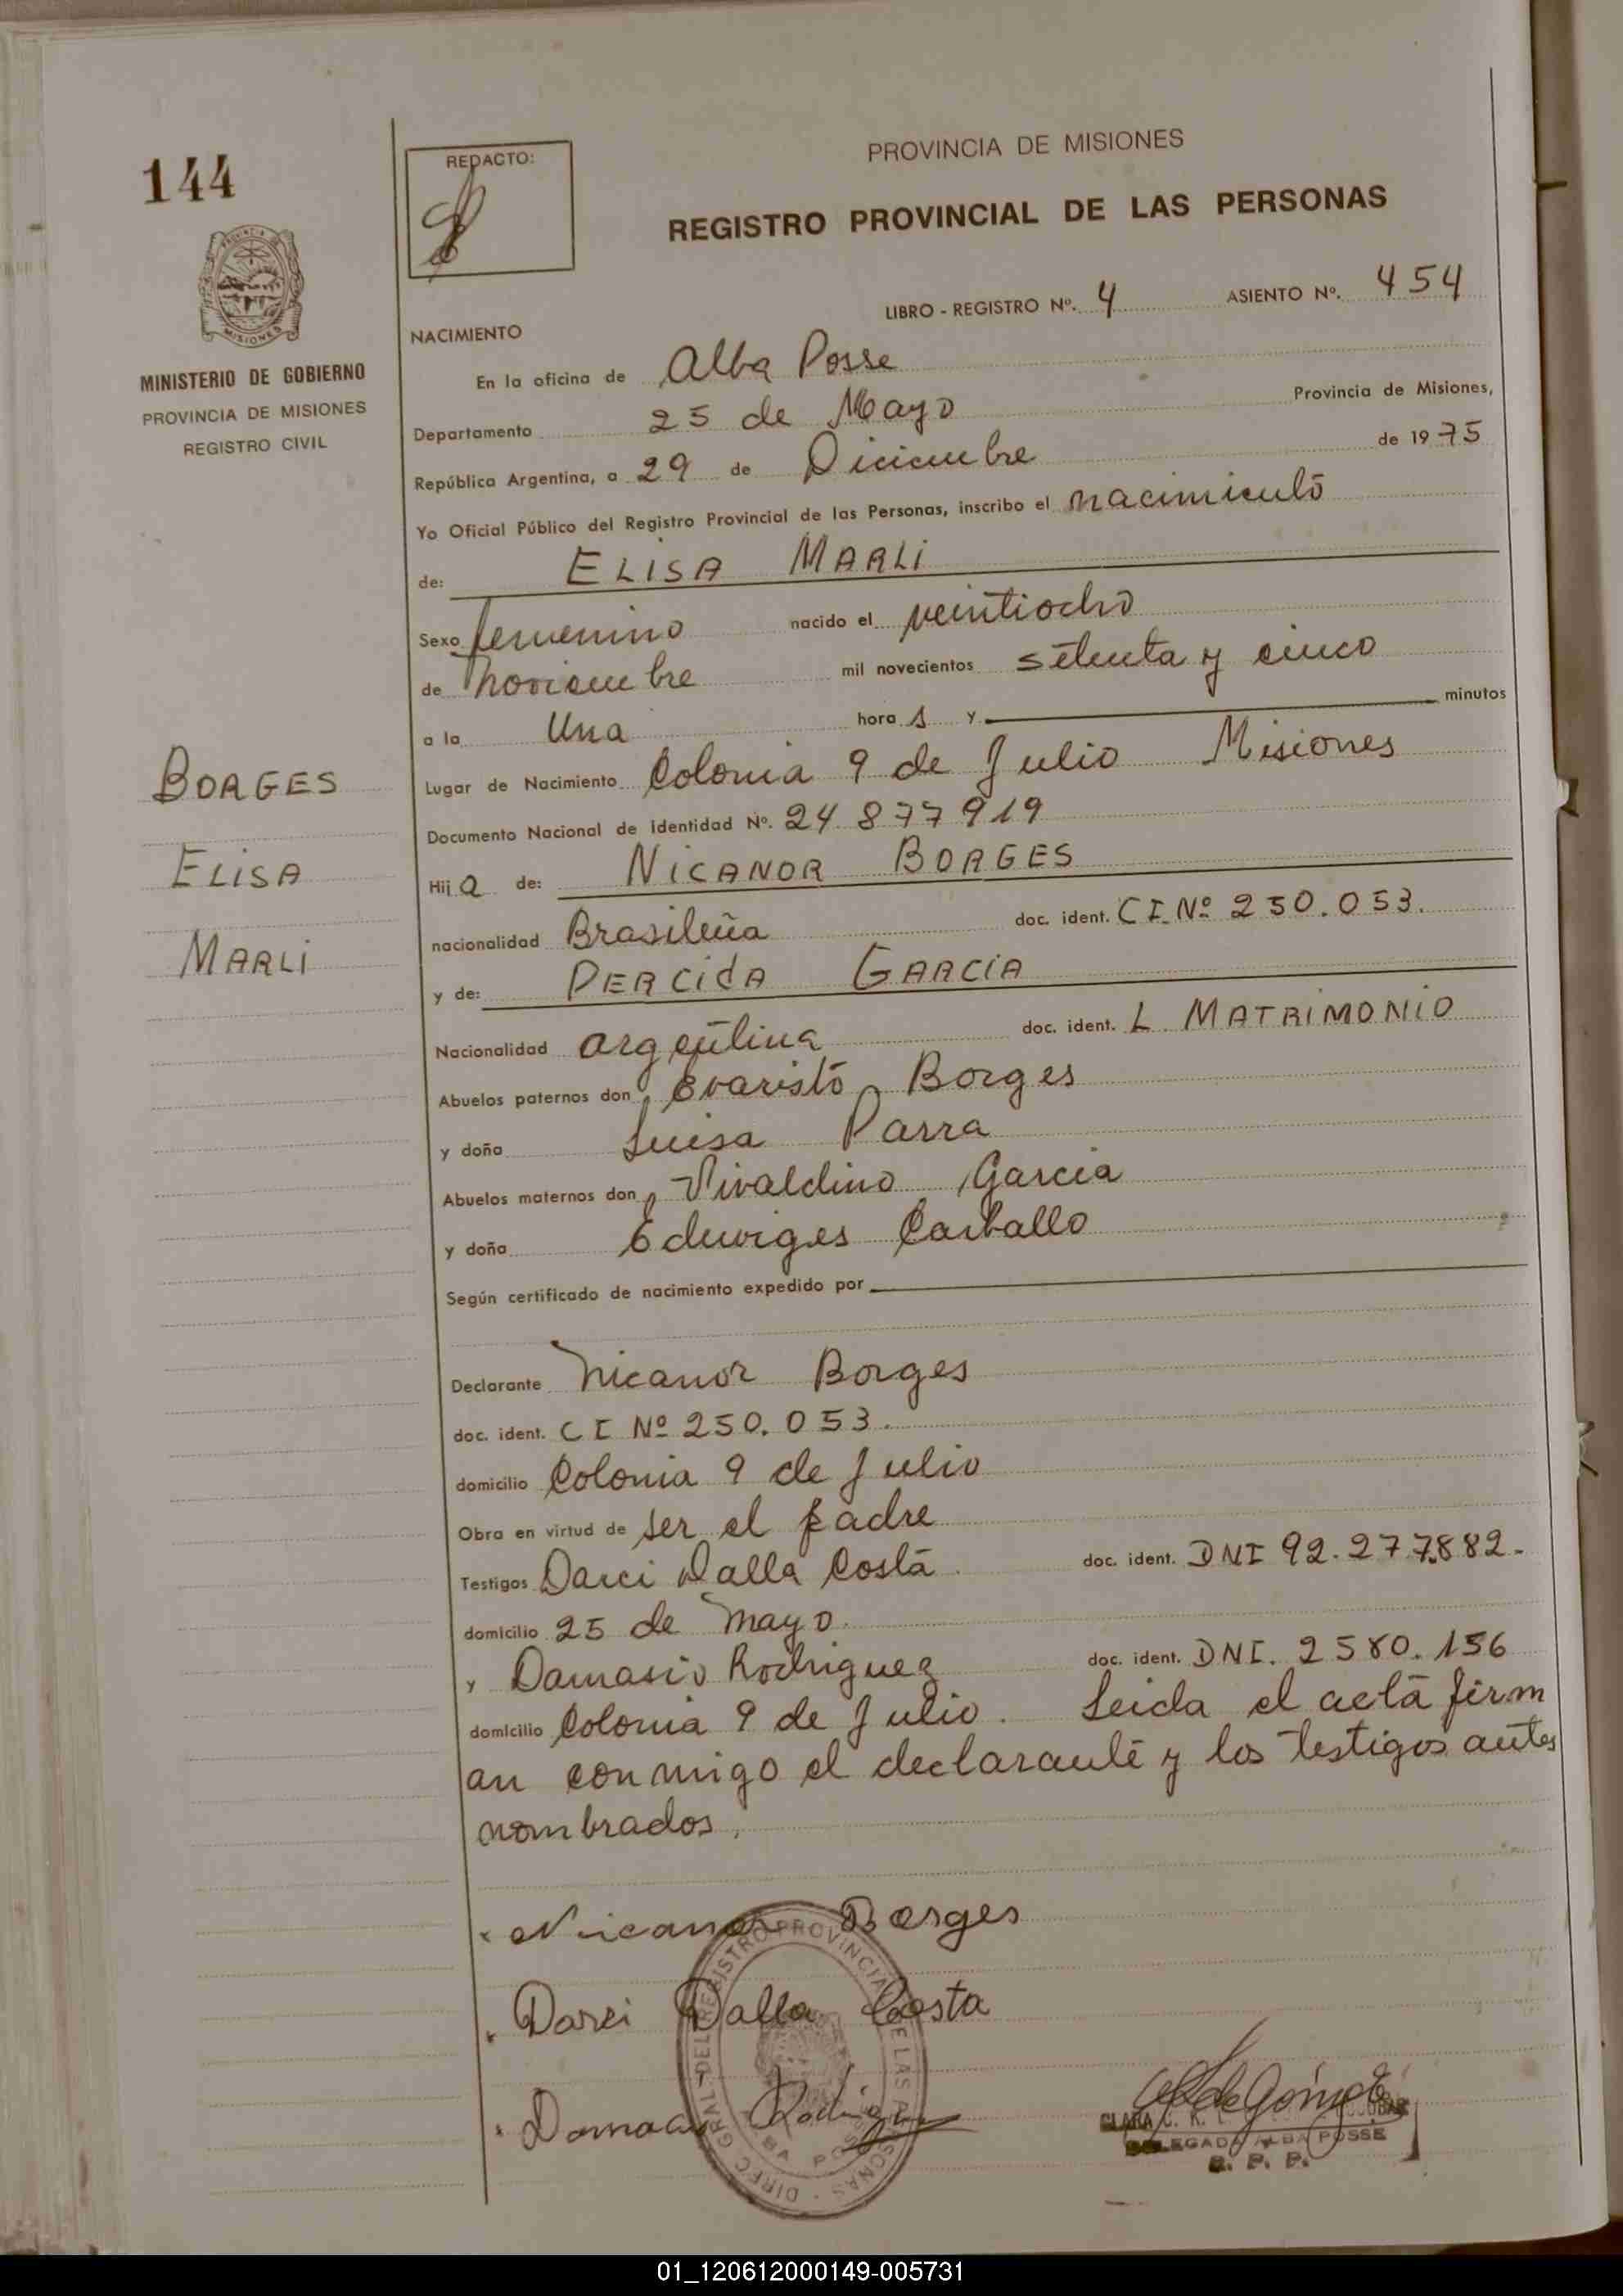 144
REDACTO:
PROVINCIA DE MISIONES
REGISTRO PROVINCIAL DE LAS PERSONAS
LIBRO - REGISTRO Nº. 4 ASIENTO Nº. 454
PROVINCIA DE
MISIONES
MINISTERIO DE GOBIERNO
PROVINCIA DE MISIONES
REGISTRO CIVIL
NACIMIENTO
En la oficina de Alba Posse
Departamento 25 de Mayo Provincia de Misiones,
República Argentina, a 29 de Diciembre de 1975
Yo Oficial Público del Registro Provincial de las Personas, inscribo el nacimiento
de: ELISA MARLI
Sexo femenino nacido el veintiocho
de noviembre mil novecientos setenta y cinco
a la Una hora 1 y minutos
Lugar de Nacimiento Colonia 9 de Julio Misiones
Documento Nacional de identidad Nº. 24 877919
Hija de: NICANOR BORGES
nacionalidad Brasileña doc. ident. CI Nº 250.053.
y de: PERCIdA GARCIA
Nacionalidad argentina doc. ident. L MATRIMONIO
Abuelos paternos don Evaristo Borges
y doña Luisa Parra
Abuelos maternos don Vivaldino Garcia
y doña Eduviges Carballo
Según certificado de nacimiento expedido por
BORGES
ELISA
MARLI
Declarante Nicanor Borges
doc. ident. CI Nº 250.053.
domicilio Colonia 9 de Julio
Obra en virtud de ser el padre
Testigos Darci Dalla Costa doc. ident. DNI 92.277.882.
domicilio 25 de Mayo.
y Damasio Rodriguez doc. ident. DNI. 2580.156
domicilio Colonia 9 de Julio. Leida el acta firm
an conmigo el declarante y los testigos antes
nombrados.
Nicanor Borges
Darci Dalla Costa
DIREC. GRAL. DEL REGISTRO PROVINCIAL DE LAS PERSONAS
ALBA POSSE
CLARA
DELEGADA ALBA POSSE
R. P. P.
01_120612000149-005731